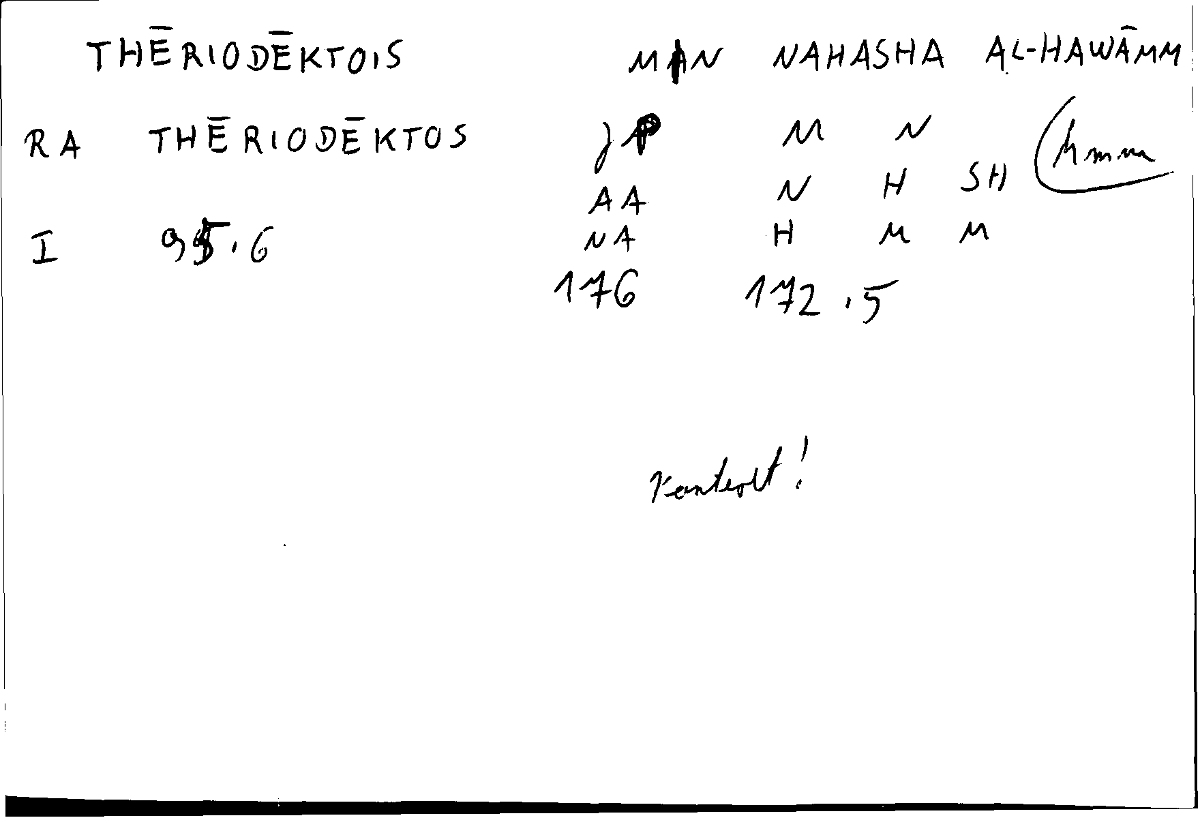 THĒRIODĒKTOIS MAN NAHASHA AL-HAWĀMM
RA THĒRIODĒKTOS JP M N (hmm
AA N H SH
NA H M M
I 95.6
176 172.5